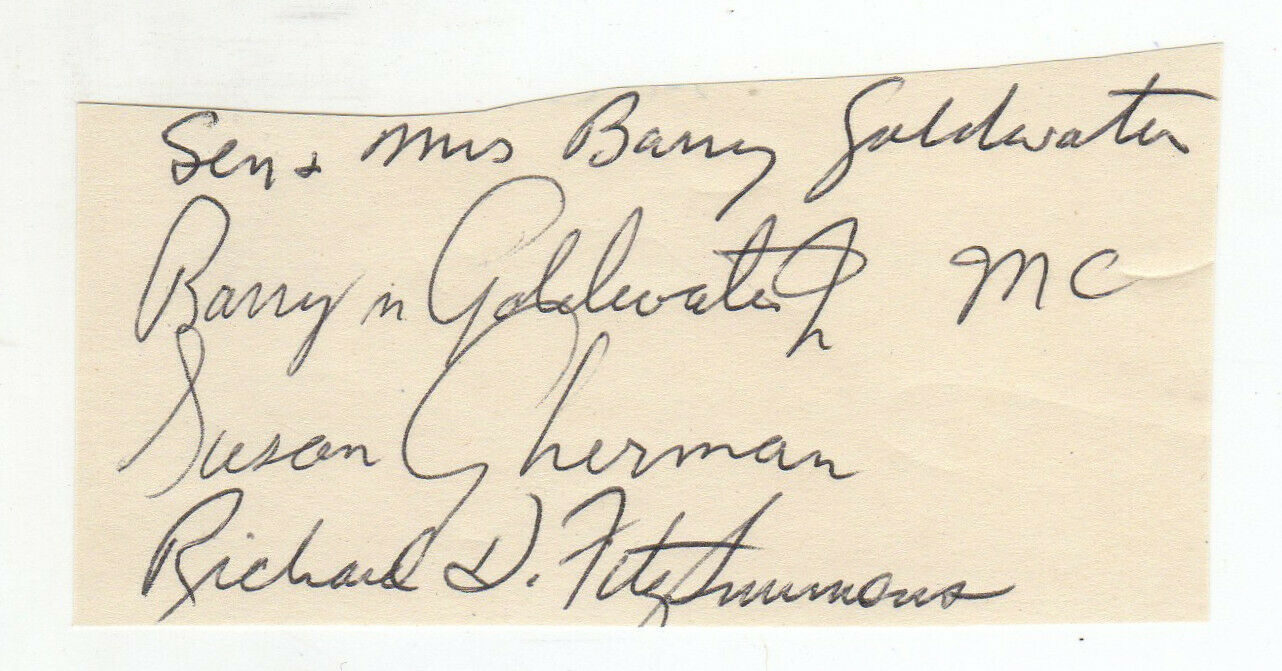 Sen & Mrs Barry Goldwater
Barry M Goldwater Jr MC
Susan Gherman
Richard D. FitzSimmons